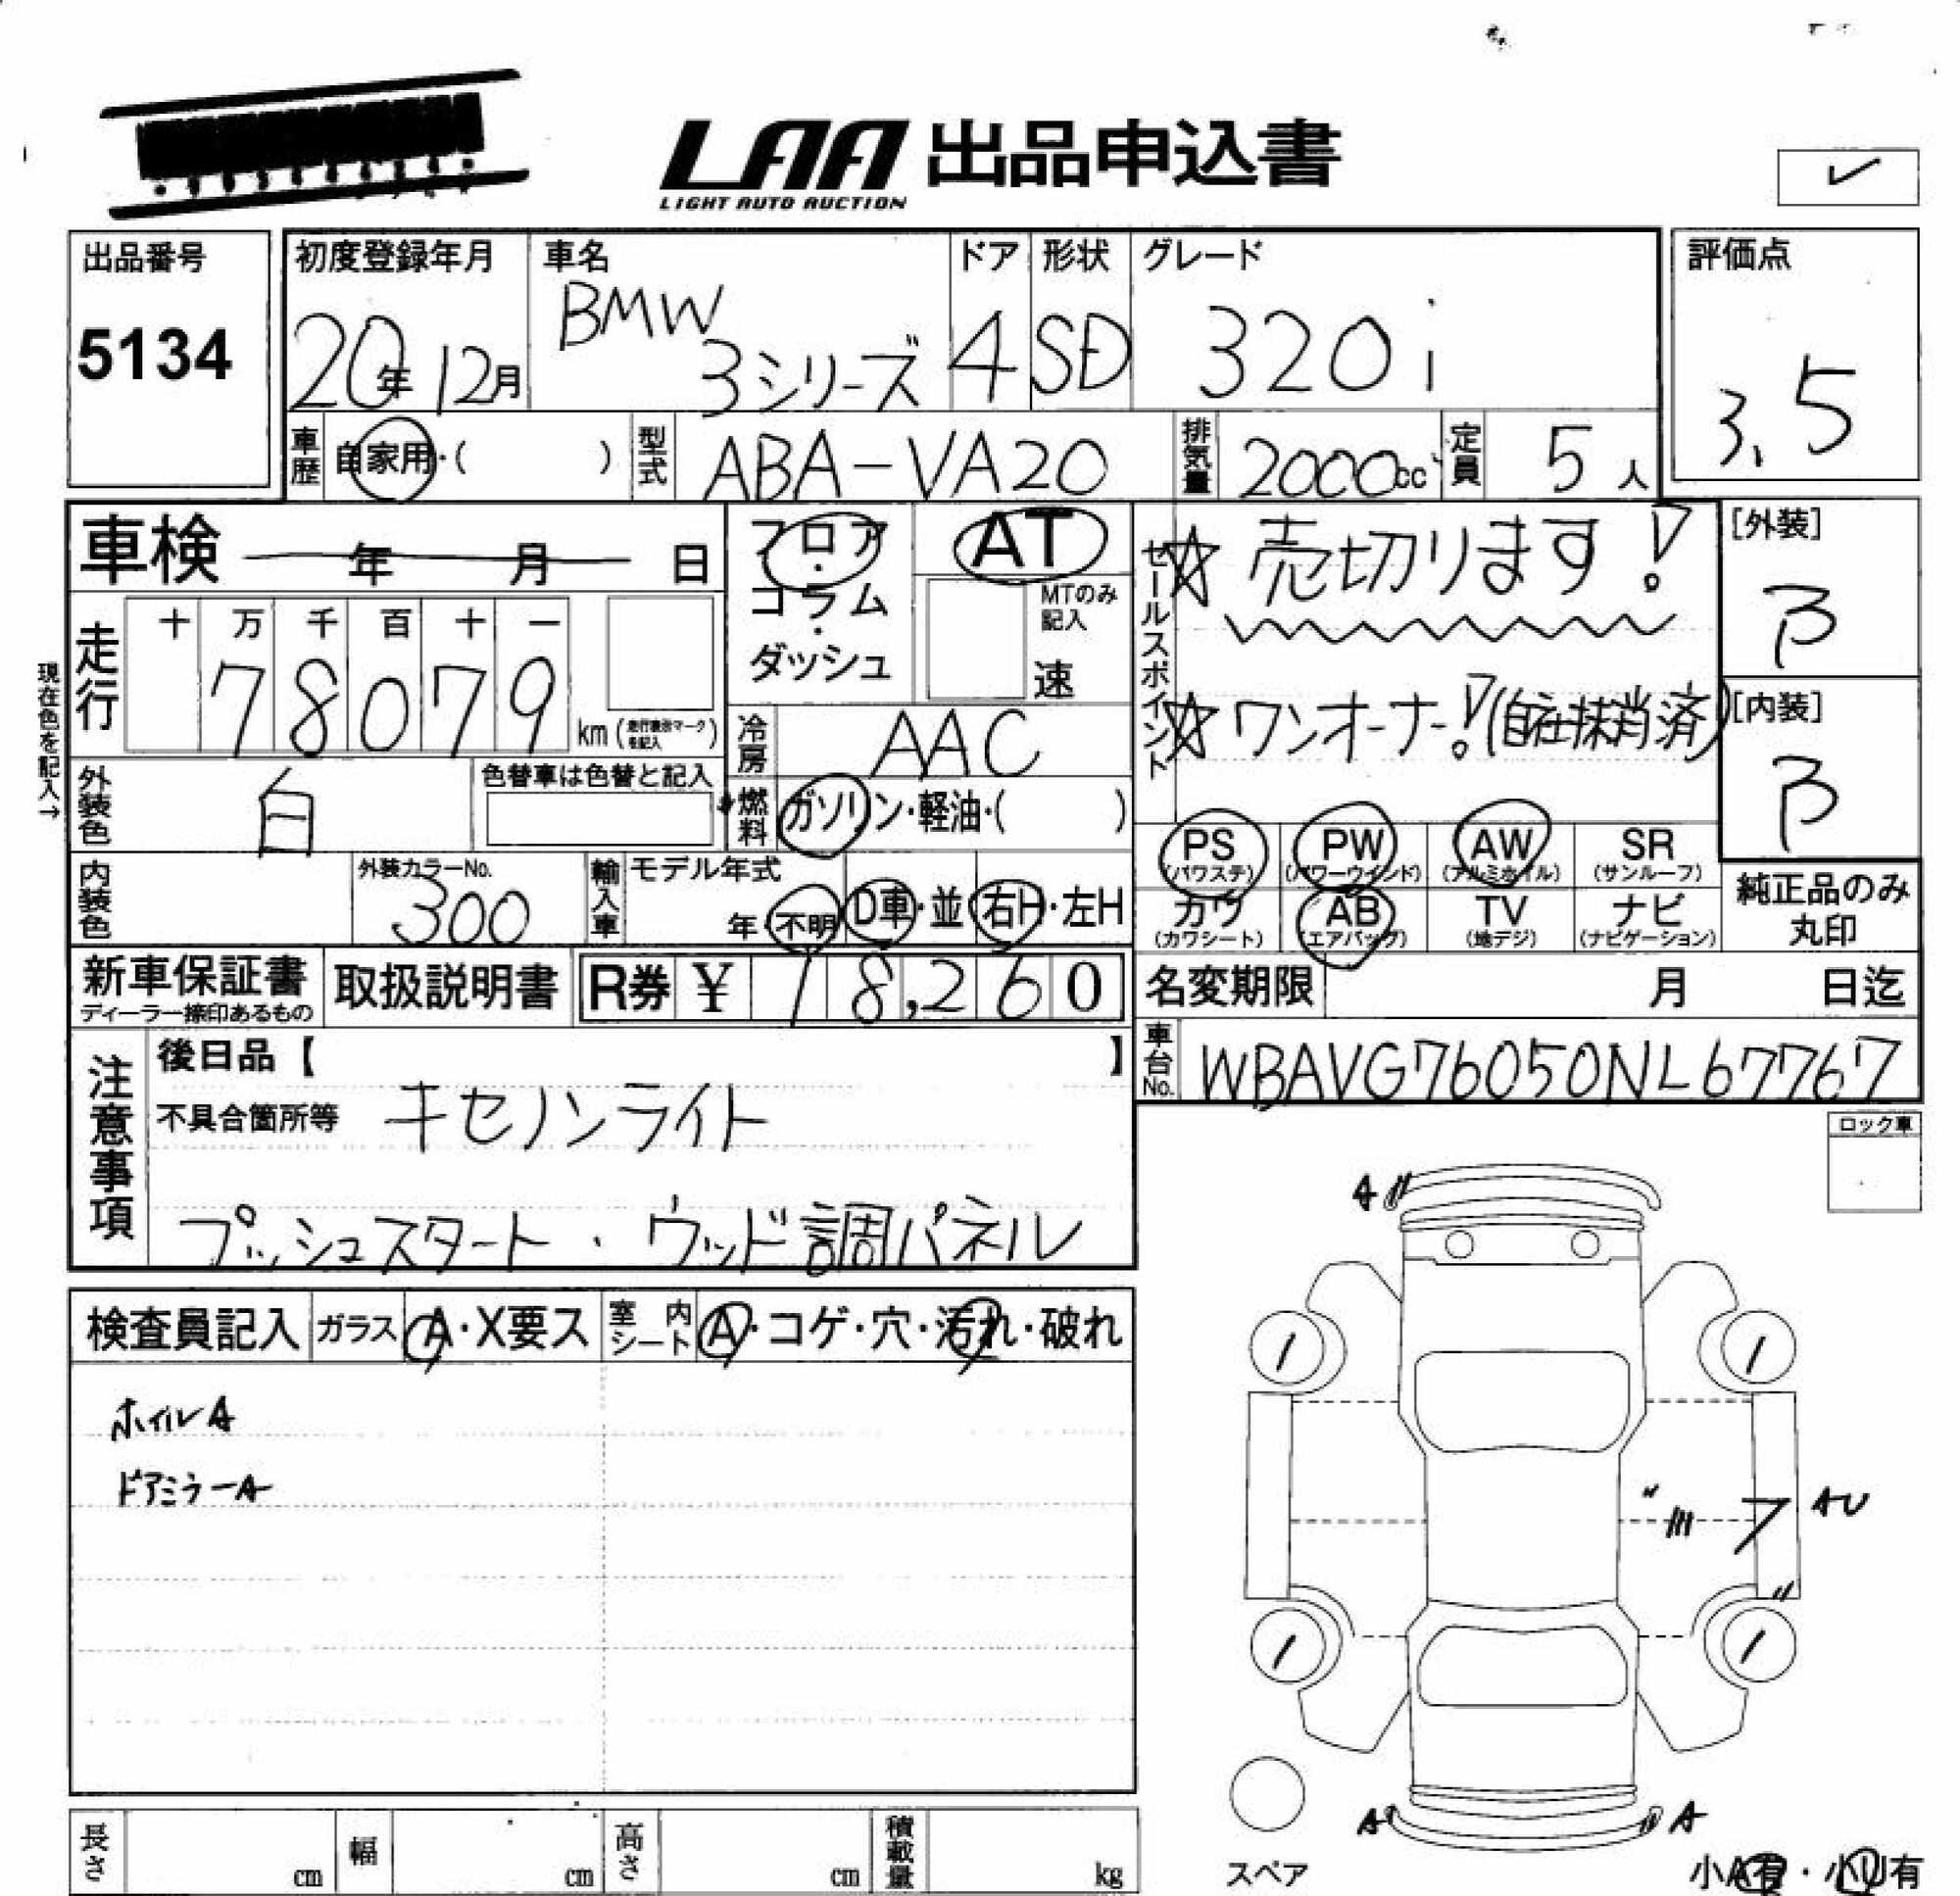 LAA 出品申込書
LIGHT AUTO AUCTION
✓
出品番号
5134
初度登録年月
20年12月
車名
BMW
3シリーズ
ドア
4
形状
SD
グレード
320i
評価点
3.5
車歴 自家用・( )
型式 ABA-VA20
排気量 2000cc
定員 5人
車検 年 月 日
フロア・コラム・ダッシュ
AT
MTのみ記入
速
セールスポイント
☆売切ります!
☆ワンオーナー!(自社抹消済)
[外装]
B
[内装]
B
現在色を記入→
走行
十 万 千 百 十 一
78079
km(走行表示マークを記入)
冷房 AAC
外装色 白
色替車は色替と記入
燃料 ガソリン・軽油・( )
PS (パワステ)
PW (パワーウインド)
AW (アルミホイル)
SR (サンルーフ)
内装色
外装カラーNo.
300
輸入車
モデル年式
年・不明
D車・並
右H・左H
カワ (カワシート)
AB (エアバッグ)
TV (地デジ)
ナビ (ナビゲーション)
純正品のみ
丸印
新車保証書
ディーラー捺印あるもの
取扱説明書
R券 ¥ 18,260
名変期限 月 日迄
車台No. WBAVG76050NL67767
注意事項
後日品【 】
不具合箇所等 キセノンライト
プッシュスタート・ウッド調パネル
ロック車
検査員記入
ガラス A・X要ス
室内シート A・コゲ・穴・汚れ・破れ
ホイルA
ドアミラーA
A
AU
7
A
A
スペア
小A有・小U有
長さ cm
幅 cm
高さ cm
積載量 kg